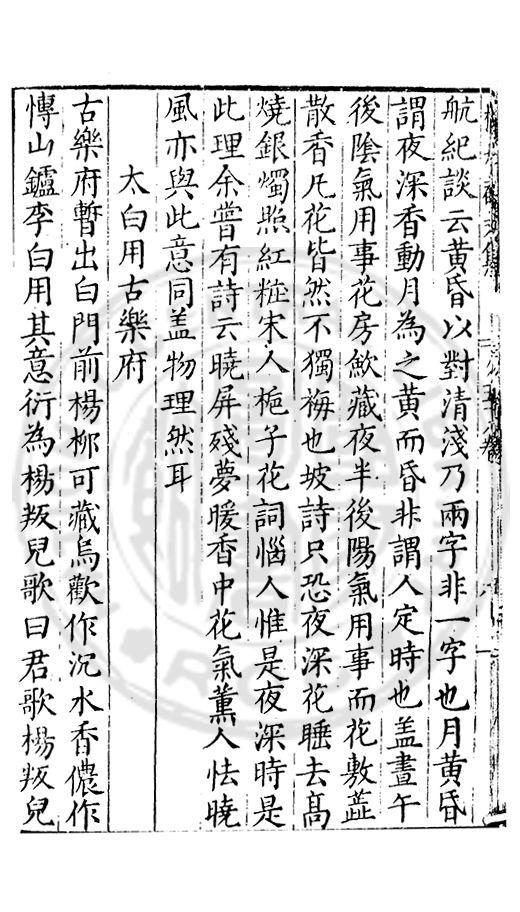 航紀談云黃昏以對清淺乃兩字非一字也月黃昏
謂夜深香動月為之黃而昏非謂人定時也盖晝午
後陰氣用事花房歛藏夜半後陽氣用事而花敷蘂
散香凡花皆然不獨梅也坡詩只恐夜深花睡去高
燒銀燭照紅粧宋人梔子花詞惱人惟是夜深時是
此理余嘗有詩云曉屏殘夢暖香中花氣薰人怯曉
風亦與此意同盖物理然耳
太白用古樂府
古樂府暫出白門前楊柳可藏烏歡作沉水香儂作
博山鑪李白用其意衍為楊叛兒歌曰君歌楊叛兒